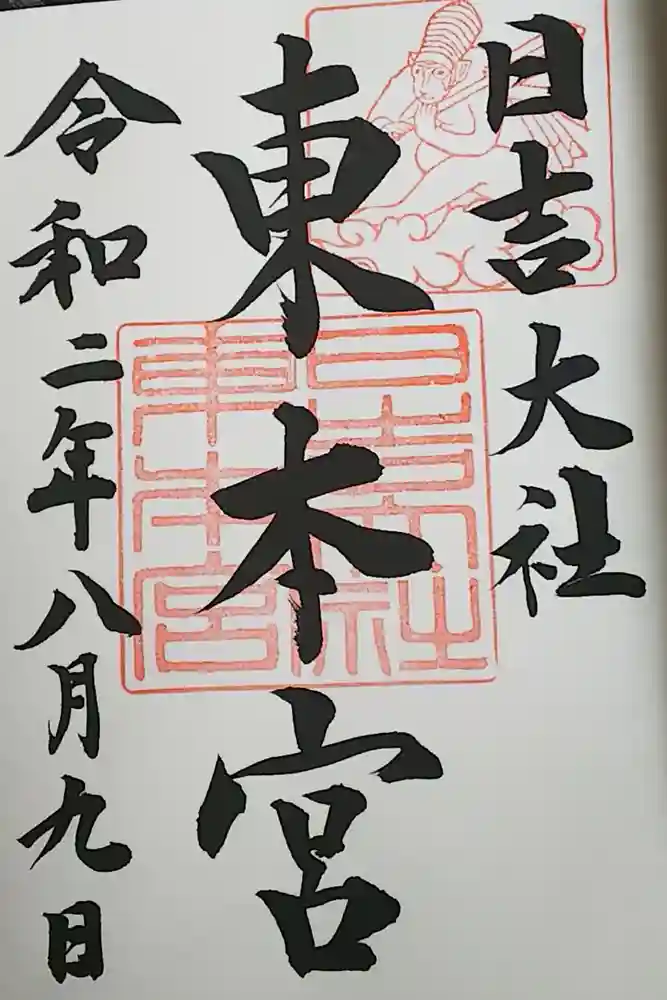 日吉大社
東本宮
令和二年八月九日
日吉大社
東本宮